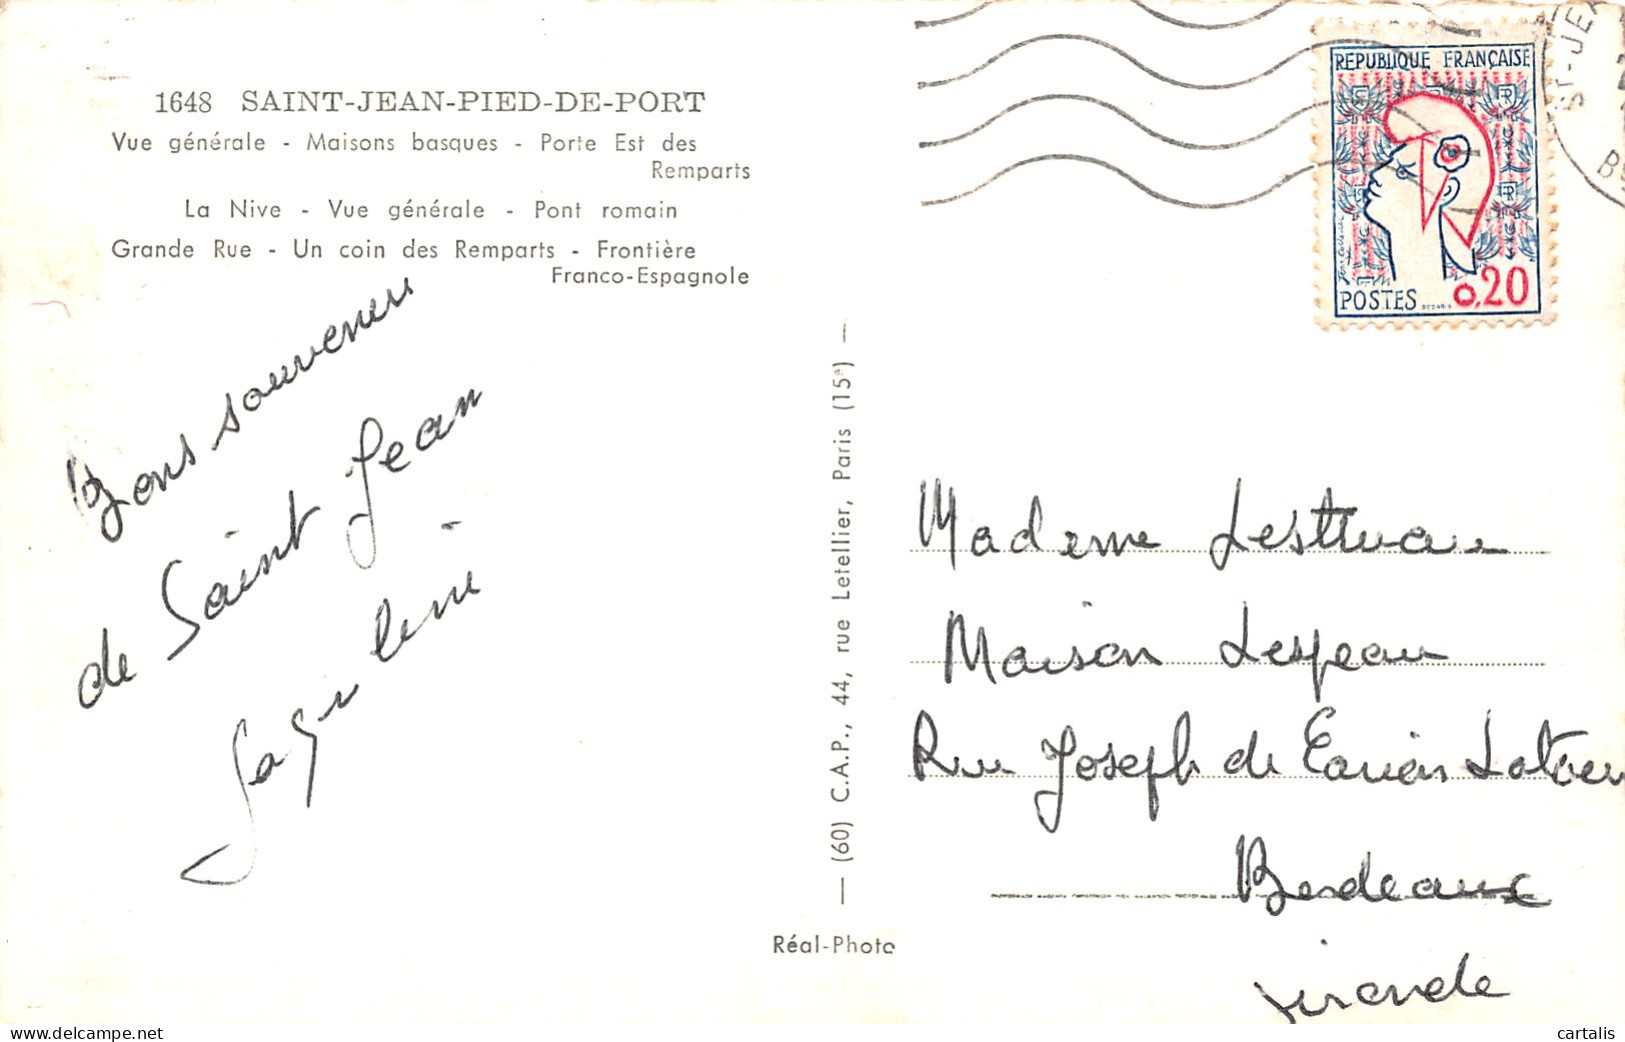 1648 SAINT-JEAN-PIED-DE-PORT
Vue générale - Maisons basques - Porte Est des
Remparts
La Nive - Vue générale - Pont romain
Grande Rue - Un coin des Remparts - Frontière
Franco-Espagnole
Bons souvenirs
de Saint Jean
Jacqueline
— (60) C.A.P., 44, rue Letellier, Paris (15e) —
Réal-Photo
REPUBLIQUE FRANÇAISE
POSTES 0,20
ST-JEA
Madame
Maison Lespeau
Rue Joseph de Carion Latour
Bordeaux
Gironde
cartalis